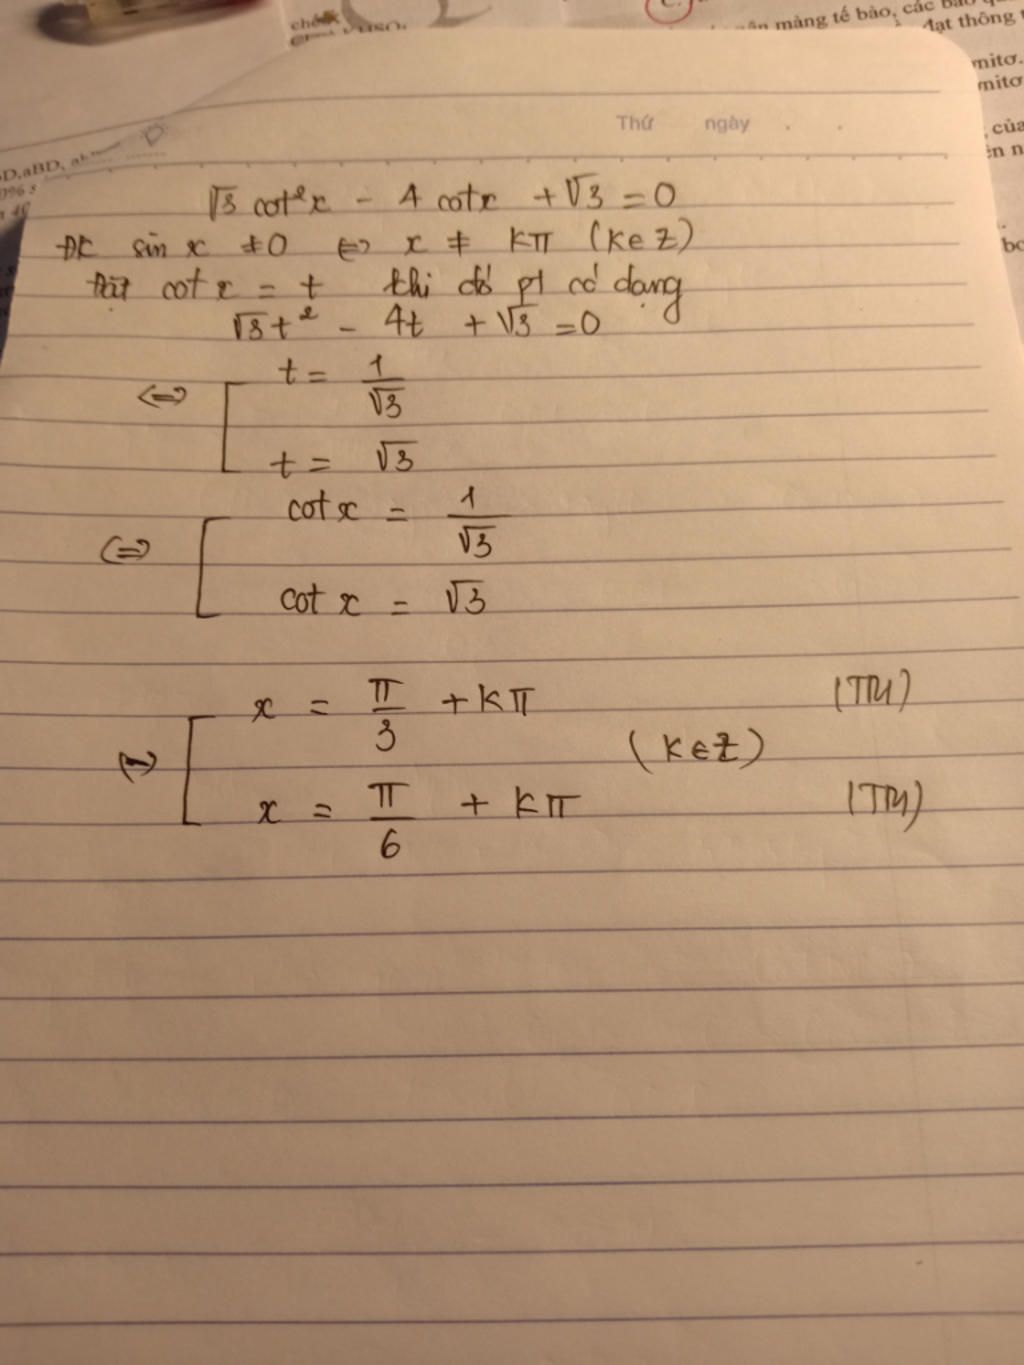 chéo
màng tế bào, các bào
đạt thông
mitơ.
mitơ
của
D,aBD,
Thứ ngày . .
√3 cot²x - 4 cotx + √3 = 0
ĐK sin x ≠ 0 ⇔ x ≠ kπ (k∈Z)
Đặt cot x = t thì đó pt có dạng
√3t² - 4t + √3 = 0
⇔ [ t = 1/√3
t = √3
⇔ [ cot x = 1/√3
cot x = √3
⇔ [ x = π/3 + kπ (TM)
(k∈Z)
x = π/6 + kπ (TM)